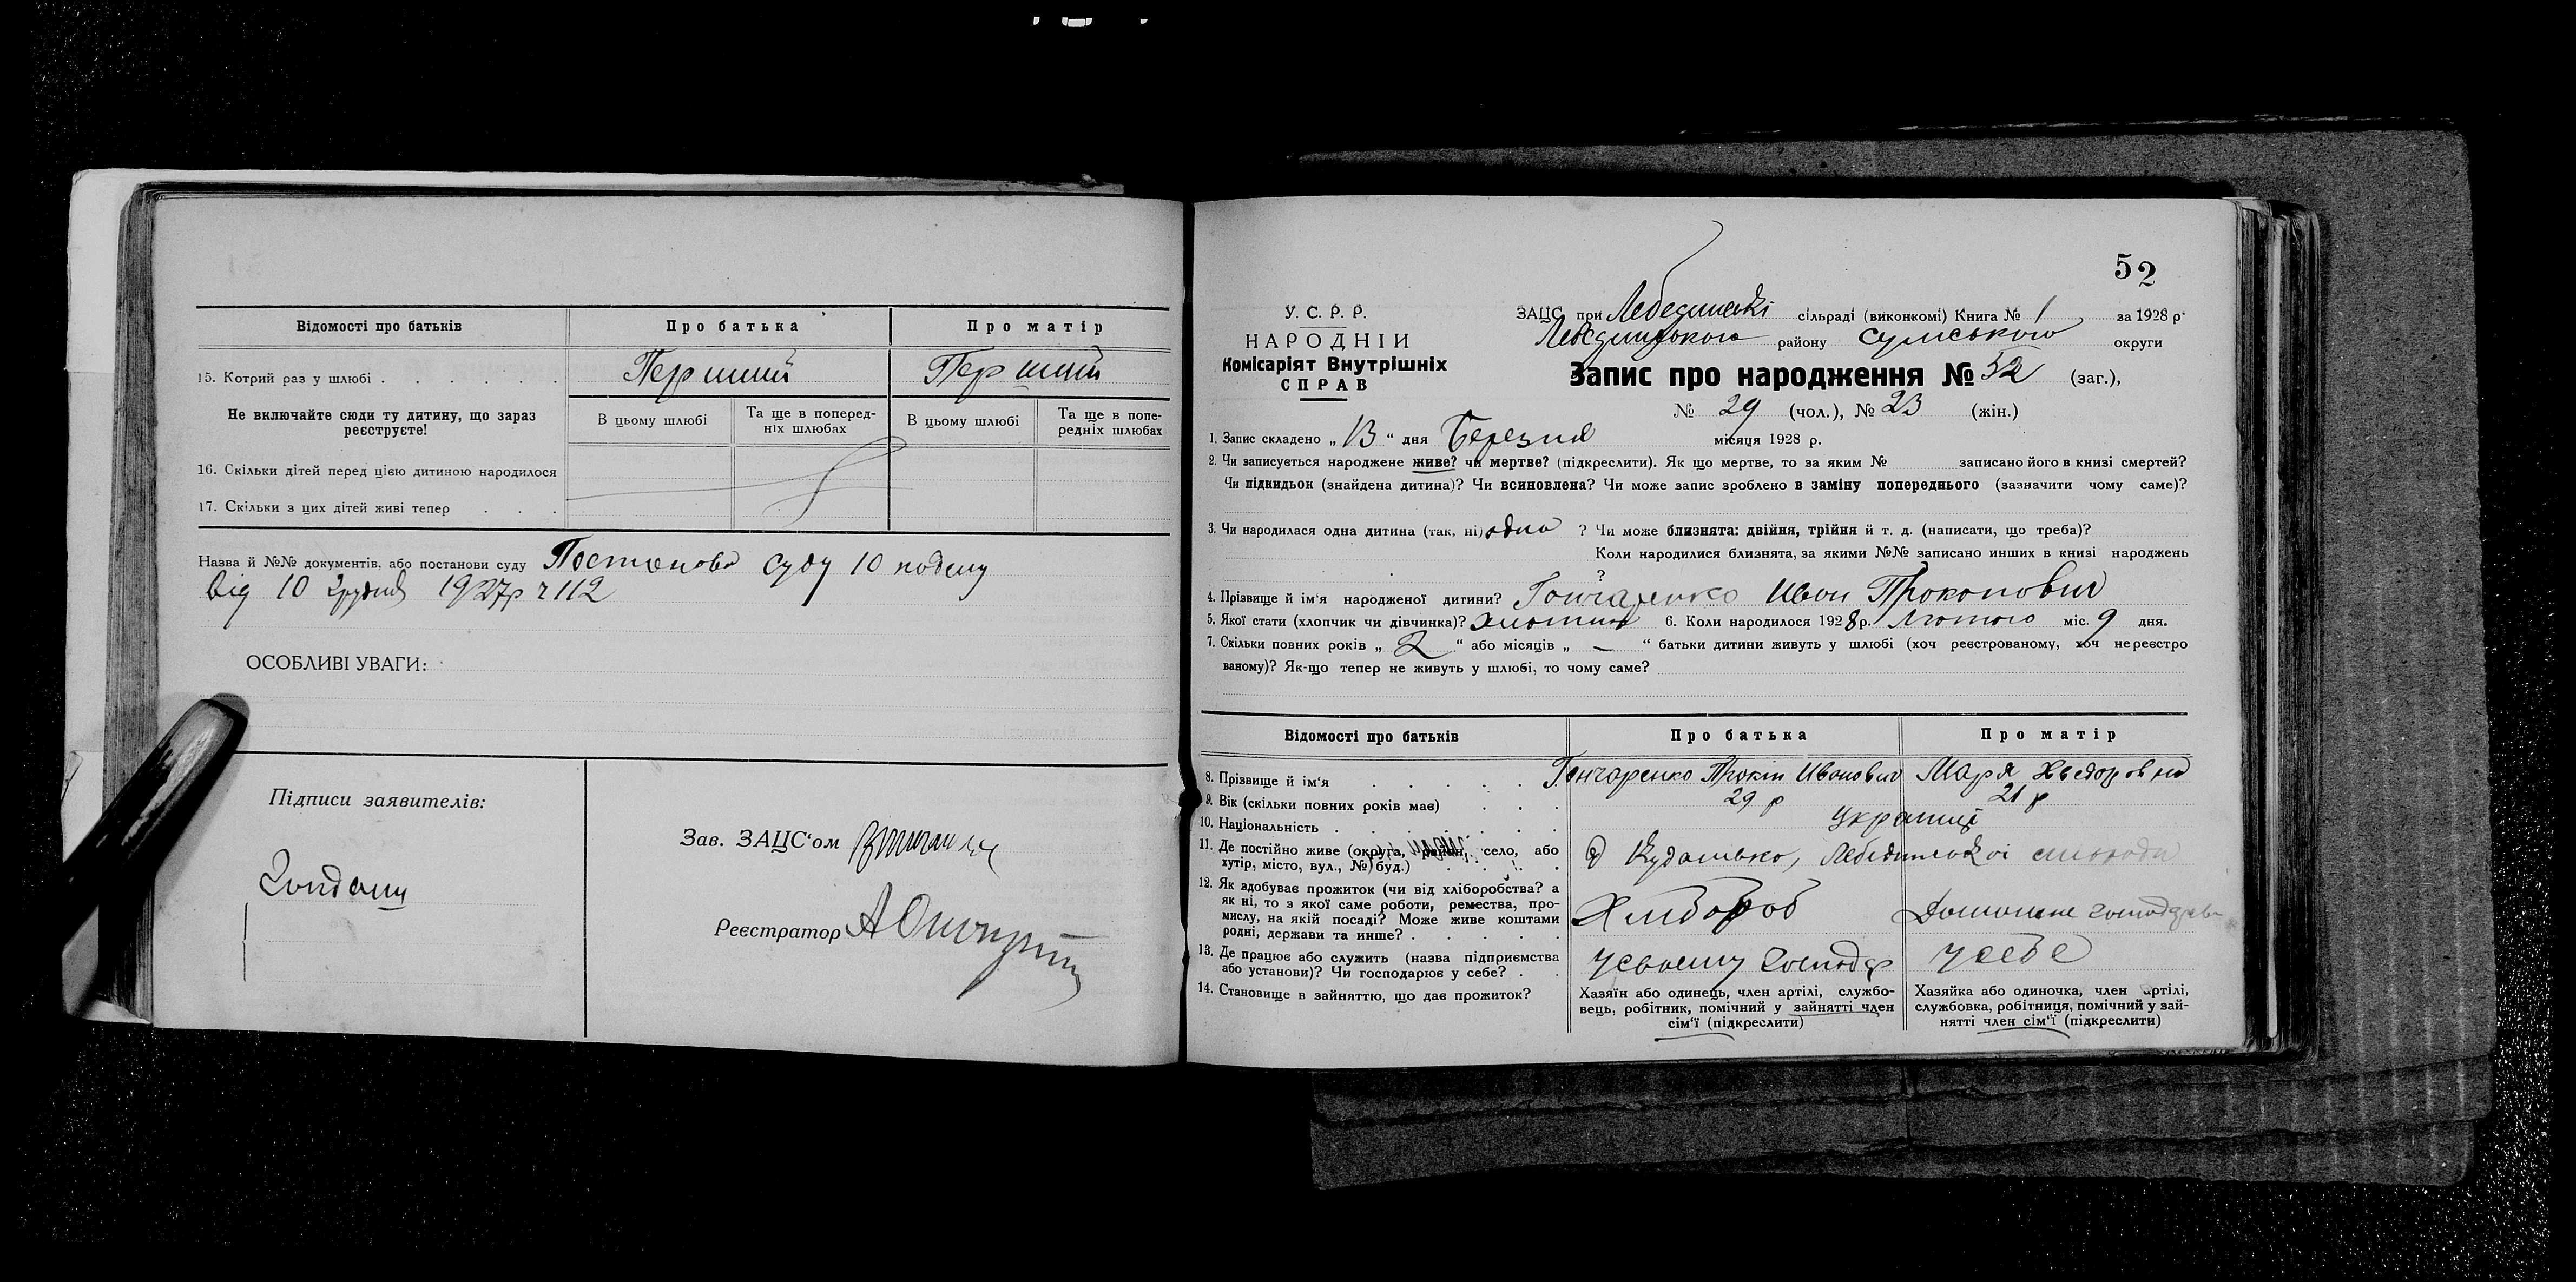 Відомості про батьків
Про батька
Про матір
15. Котрий раз у шлюбі
Перший
Перший
Не включайте сюди ту дитину, що зараз
реєструєте!
В цьому шлюбі
Та ще в поперед-
ніх шлюбах
В цьому шлюбі
Та ще в попе-
редніх шлюбах
16. Скільки дітей перед цією дитиною народилося
17. Скільки з цих дітей живі тепер
Назва й №№ документів, або постанови суду Постанова суду 10
від 10 грудня 1927р ч 112
ОСОБЛИВІ УВАГИ:
Підписи заявителів:
Зав. ЗАЦС‘ом
Реєстратор
52
У. С. Р. Р.
НАРОДНІЙ
Комісаріят Внутрішніх
СПРАВ
ЗАЦС при Лебединські сільраді (виконкомі) Книга № 1 за 1928 р.
Лебединського району Сумського округи
Запис про народження № 52 (заг.),
№ 29 (чол.), № 23 (жін.)
1. Запис складено „ 13 “ дня Березня місяця 1928 р.
2. Чи записується народжене живе? чи мертве? (підкреслити). Як що мертве, то за яким № записано його в книзі смертей?
Чи підкидьок (знайдена дитина)? Чи всиновлена? Чи може запис зроблено в заміну попереднього (зазначити чому саме)?
3. Чи народилася одна дитина (так, ні) одна ? Чи може близнята: двійня, трійня й т. д. (написати, що треба)?
Коли народилися близнята, за якими №№ записано инших в книзі народжень
?
4. Прізвище й ім‘я народженої дитини? Гончаренко Иван Прокопович
5. Якої стати (хлопчик чи дівчинка)? 6. Коли народилося 1928 р. Лютого міс. 9 дня.
7. Скільки повних років „ 2 “ або місяців „ — “ батьки дитини живуть у шлюбі (хоч реєстрованому, хоч нереєстро
ваному)? Як-що тепер не живуть у шлюбі, то чому саме?
Відомості про батьків
Про батька
Про матір
8. Прізвище й ім‘я
Гончаренко Прокіп Иванович
Марія Хведоровна
9. Вік (скільки повних років має)
29 р
21 р
10. Національність
Українці
11. Де постійно живе (округа, район, село, або
хутір, місто, вул., №) буд.)
Лебединської
12. Як здобуває прожиток (чи від хліборобства? а
як ні, то з якої саме роботи, ремества, про-
мислу, на якій посаді? Може живе коштами
родні, держави та инше?
Хлібороб
Домошне господар
13. Де працює або служить (назва підприємства
або установи)? Чи господарює у себе?
у своєму господар
у себе
14. Становище в зайняттю, що дає прожиток?
Хазяїн або одинець, член артілі, службо-
вець, робітник, помічний у зайнятті член
сім‘ї (підкреслити)
Хазяйка або одиночка, член артілі,
службовка, робітниця, помічний у зай-
нятті член сім‘ї (підкреслити)